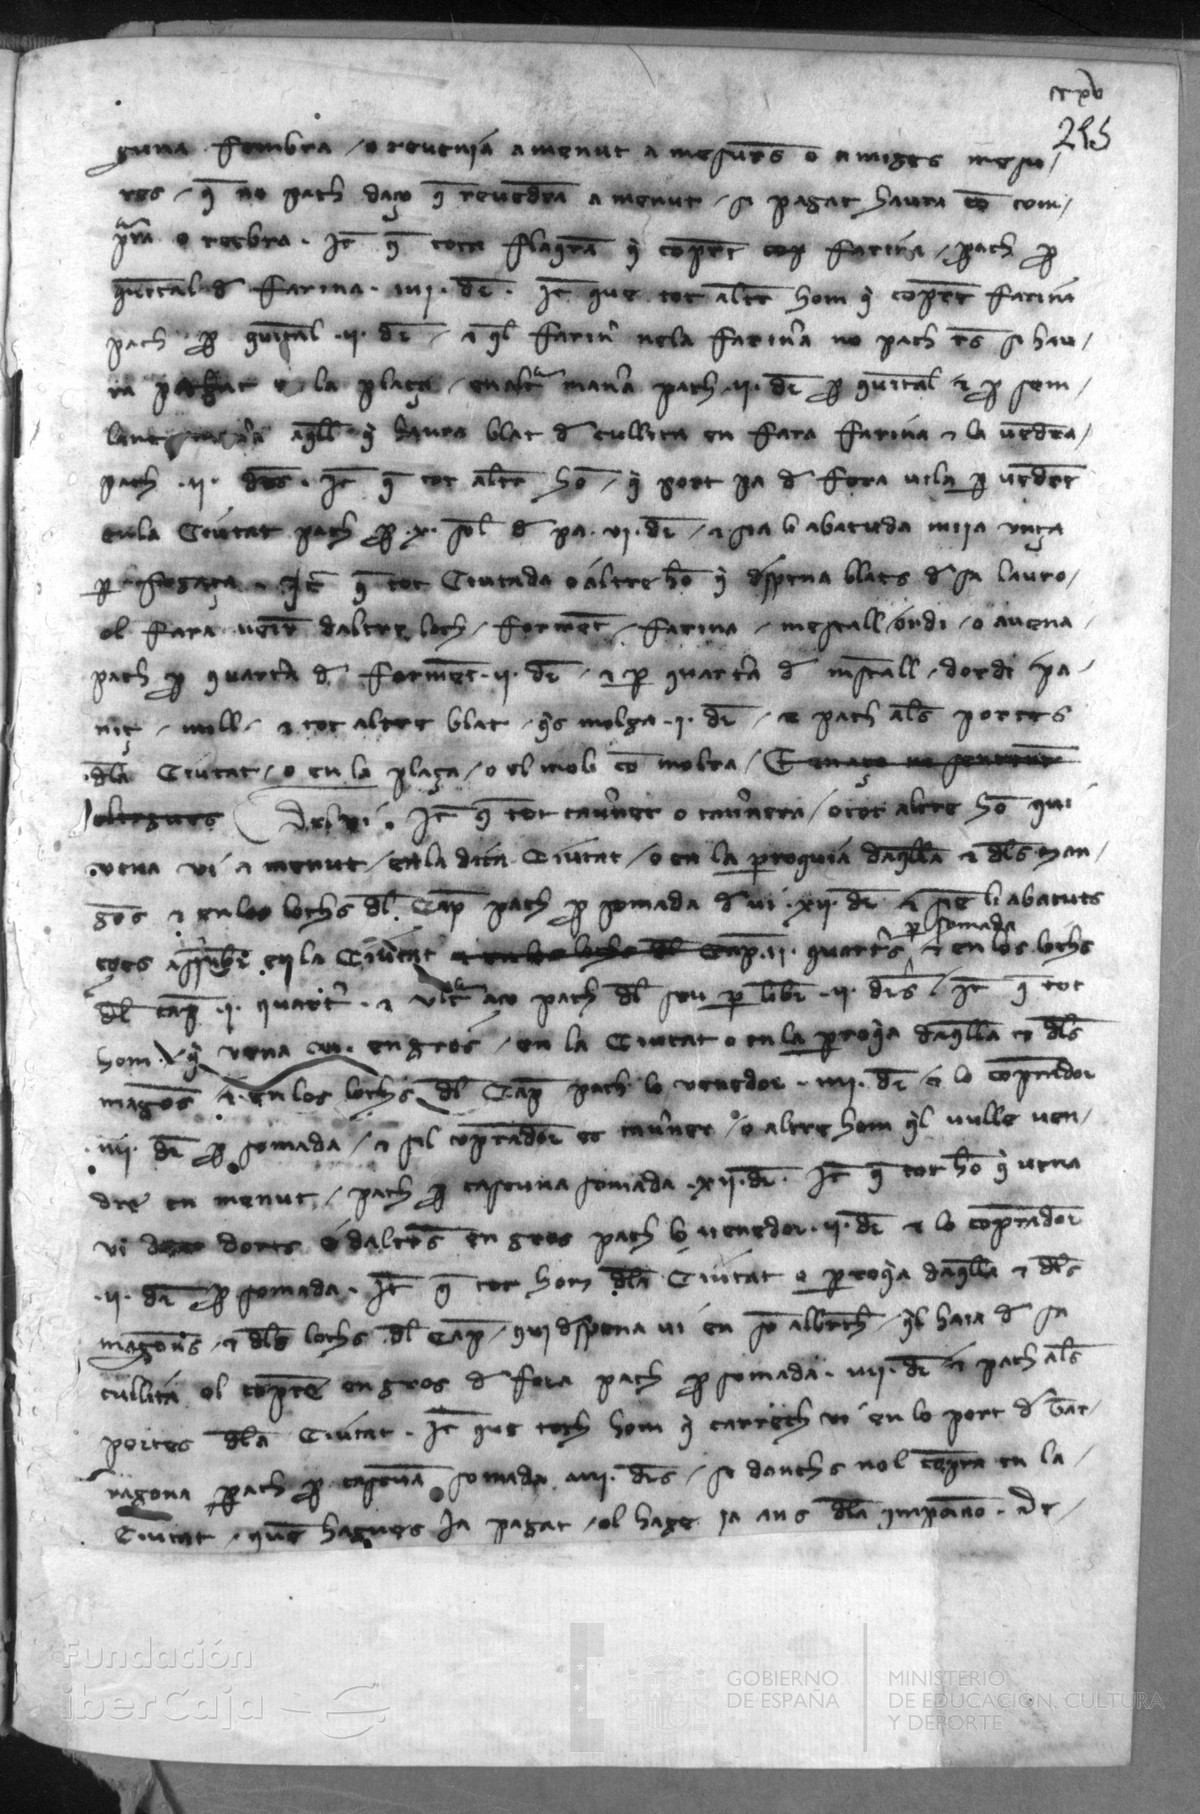 215
guna fembra / o revenia a menut a mesurēs o a miges mesu/
res / q̄ no pach daço q̄ revedra a menut / si pagat haura cō com/
pra o reebra . Itē q̄ tota flaqra q̄ copret farina / pach p
quītal d farina . iiij . dr̄ . Itē que tot altr̄ hom q̄ coprēt farina
pach p quītal .ij. dr̄ / farina no pach rēs si hau/
ra pagat e la plaça / en altra manra pach .ij. dr̄ p quītal e p sem/
lant aqll q̄ haura blat d cullita en fara farina e la vēdra /
pach .ij. drs . Itē q̄ tot altr̄ hō / q̄ port pa d fora vila p vēdre
en la Ciutat pach p .x. sol d pa . vj . dr̄ / e sia li abatuda mija unça
p fogaça . Itē q̄ tot Ciutada o altre hō q̄ dspena blats d sa lauro /
ol fara venir daltre loch / formēt / farina / mestall / ordi / o avena /
pach p quartra d formēt .ij. dr̄ / e p quartra d mestall / dordi pa/
niç / mill / e tot altre blat / qs molga .j. dr̄ / e pach als portes
dla Ciutat / o en la plaça / o el moli cō molra /
Del vi . Itē q̄ tot tavner o tavnera / o tot altre hō qui
vena vi a menut / en la dita Ciutat / o en la parroquia daqlla e dls man/
gōs e en los lochs dl Cāp pach p somada d vi .xij. dr̄ e siē li abatuts
en la Ciutat .ij. quartrs p somada e en los lochs
dl cāp .j. quartr . e ultra aço pach dl seu p libr .ij. drs / Itē q̄ tot
hom q̄ vena vi . en gros / en la Ciutat o en la parroqia daqlla e dls
magōs e en los lochs dl Cāp pach lo venedor . iiij . dr̄ e lo coprador
. iiij . dr̄ p somada / e sil coprador es tavner / o altre hom qil vulle ven/
dre en menut / pach p cascuna somada .xij. dr̄ . Itē q̄ tot hō q̄ vena
vi dorts o daltrs en gros pach lo venedor .ij. dr̄ e lo coprador
.ij. dr̄ p somada . Itē q̄ tot hom dla Ciutat o parroqia daqlla e dls
magōs / e dls lochs dl Cāp / qui dspena vi en sō alberch / qil haia d sa
cullita ol copre en gros d fora pach p somada . iiij . dr̄ e pach als
portes dla Ciutat . Itē que toth hom q̄ carrech vi en lo port d Tar/
ragona pach p cascuna somada . iiij . drs / si donchs nol copra en la /
Ciutat / que hagues ja pagat / ol hage ja ans dla imposicio . De /
Fundación
iberCaja
GOBIERNO
DE ESPAÑA
MINISTERIO
DE EDUCACIÓN, CULTURA
Y DEPORTE